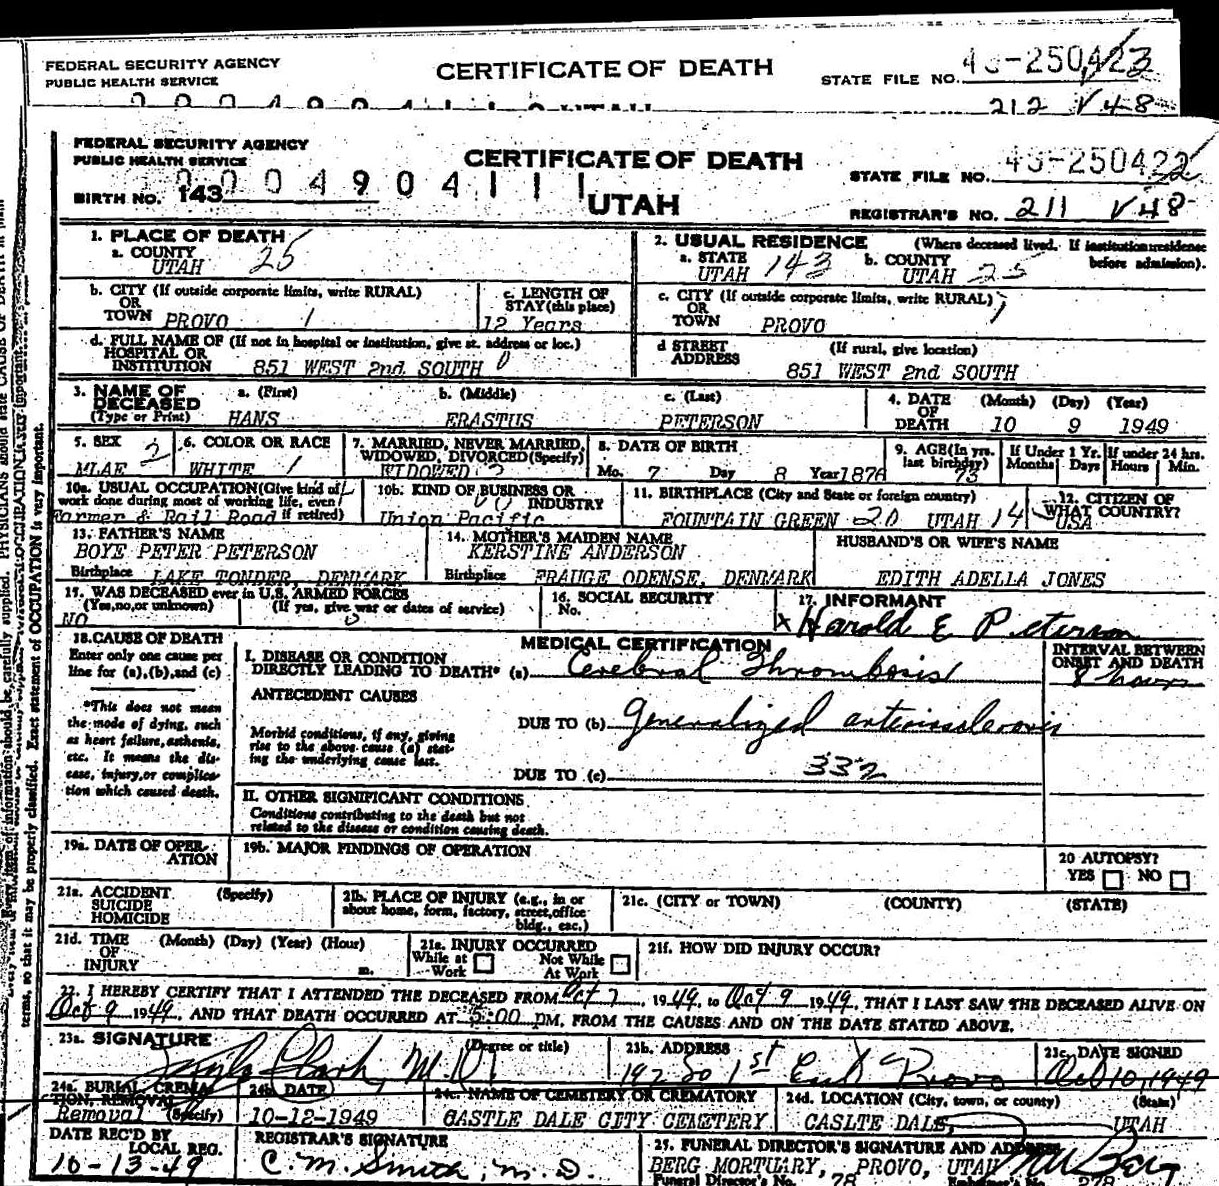 FEDERAL SECURITY AGENCY
PUBLIC HEALTH SERVICE
CERTIFICATE OF DEATH
STATE FILE NO.
212 V 48
FEDERAL SECURITY AGENCY
PUBLIC HEALTH SERVICE
CERTIFICATE OF DEATH
UTAH
STATE FILE NO. 49-250422
BIRTH NO. 143
0004904111
REGISTRAR'S NO. 211 V 48
1. PLACE OF DEATH
a. COUNTY
UTAH 25
2. USUAL RESIDENCE (Where deceased lived. If institution:residence before admission).
a. STATE
UTAH 143
b. COUNTY
UTAH 25
b. CITY (If outside corporate limits, write RURAL)
OR
TOWN PROVO 1
c. LENGTH OF
STAY(this place)
12 Years
c. CITY (If outside corporate limits, write RURAL)
OR
TOWN PROVO
d. FULL NAME OF (If not in hospital or institution, give st. address or loc.)
HOSPITAL OR
INSTITUTION 851 WEST 2nd SOUTH 0
d STREET
ADDRESS
(If rural, give location)
851 WEST 2nd SOUTH
3. NAME OF
DECEASED
(Type or Print)
a. (First)
HANS
b. (Middle)
ERASTUS
c. (Last)
PETERSON
4. DATE
OF
DEATH
(Month) (Day) (Year)
10 9 1949
5. SEX 2
MLAE
6. COLOR OR RACE
WHITE 1
7. MARRIED, NEVER MARRIED,
WIDOWED, DIVORCED(Specify)
WIDOWED
8. DATE OF BIRTH
Mo. 7 Day 8 Year 1876
9. AGE(In yrs.
last birthday)
73
If Under 1 Yr.
Months Days
If under 24 hrs.
Hours Min.
10a. USUAL OCCUPATION(Give kind of
work done during most of working life, even
if retired)
Farmer & Rail Road
10b. KIND OF BUSINESS OR
INDUSTRY
Union Pacific
11. BIRTHPLACE (City and State or foreign country)
FOUNTAIN GREEN 20 UTAH 14
12. CITIZEN OF
WHAT COUNTRY?
USA
13. FATHER'S NAME
BOYE PETER PETERSON
Birthplace LAKE TONDER, DENMARK
14. MOTHER'S MAIDEN NAME
KERSTINE ANDERSON
Birthplace FRAUGE ODENSE, DENMARK
HUSBAND'S OR WIFE'S NAME
EDITH ADELLA JONES
15. WAS DECEASED ever in U.S. ARMED FORCES
(Yes,no,or unknown) (If yes, give war or dates of service)
NO
16. SOCIAL SECURITY
No.
17. INFORMANT
x Harold E Peterson
18. CAUSE OF DEATH
Enter only one cause per
line for (a),(b),and (c)
*This does not mean
the mode of dying, such
as heart failure, asthenia,
etc. It means the dis-
ease, injury, or complica-
tion which caused death.
MEDICAL CERTIFICATION
I. DISEASE OR CONDITION
DIRECTLY LEADING TO DEATH* (a) Cerebral Thrombosis
INTERVAL BETWEEN
ONSET AND DEATH
8 hours
ANTECEDENT CAUSES
Morbid conditions, if any, giving
rise to the above cause (a) stat-
ing the underlying cause last.
DUE TO (b) generalized arteriosclerosis
DUE TO (c) 332
II. OTHER SIGNIFICANT CONDITIONS
Conditions contributing to the death but not
related to the disease or condition causing death.
19a. DATE OF OPER-
ATION
19b. MAJOR FINDINGS OF OPERATION
20 AUTOPSY?
YES NO
21a. ACCIDENT (Specify)
SUICIDE
HOMICIDE
21b. PLACE OF INJURY (e.g., in or
about home, form, factory, street,office
bldg., etc.)
21c. (CITY or TOWN) (COUNTY) (STATE)
21d. TIME (Month) (Day) (Year) (Hour)
OF
INJURY m.
21e. INJURY OCCURRED
While at Work
Not While At Work
21f. HOW DID INJURY OCCUR?
22. I HEREBY CERTIFY THAT I ATTENDED THE DECEASED FROM Oct 7, 1949, to Oct 9 1949, THAT I LAST SAW THE DECEASED ALIVE ON
Oct 9 1949, AND THAT DEATH OCCURRED AT 5:00 PM, FROM THE CAUSES AND ON THE DATE STATED ABOVE.
23a. SIGNATURE (Degree or title)
Clark, M.D.
23b. ADDRESS
192 So 1st East Provo
23c. DATE SIGNED
Oct 10, 1949
24a. BURIAL, CREMA-
TION, REMOVAL
Removal (Specify)
24b. DATE
10-12-1949
24c. NAME OF CEMETERY OR CREMATORY
CASTLE DALE CITY CEMETERY
24d. LOCATION (City, town, or county) (State)
CASLTE DALE, UTAH
DATE REC'D BY
LOCAL REG.
10-13-49
REGISTRAR'S SIGNATURE
C. M. Smith, M. D.
25. FUNERAL DIRECTOR'S SIGNATURE AND ADDRESS
BERG MORTUARY, PROVO, UTAH
Funeral Director's No. 78
Embalmer's No. 278
terms, so that it may be properly classified. Exact statement of OCCUPATION is very important.